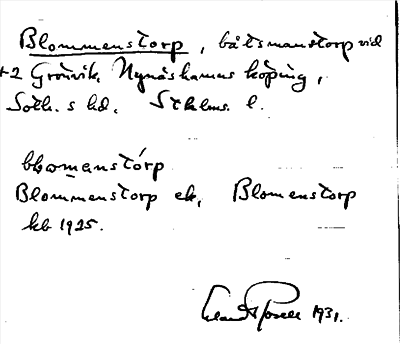 Blommenstorp, båtsmanstorp vid
+2 Grönvik, Nynäshamns köping,
Soth. s hd. Sthlms. l.
bloman̲stórp
Blommenstorp ek, Blomenstorp
kb 1925.
1931.